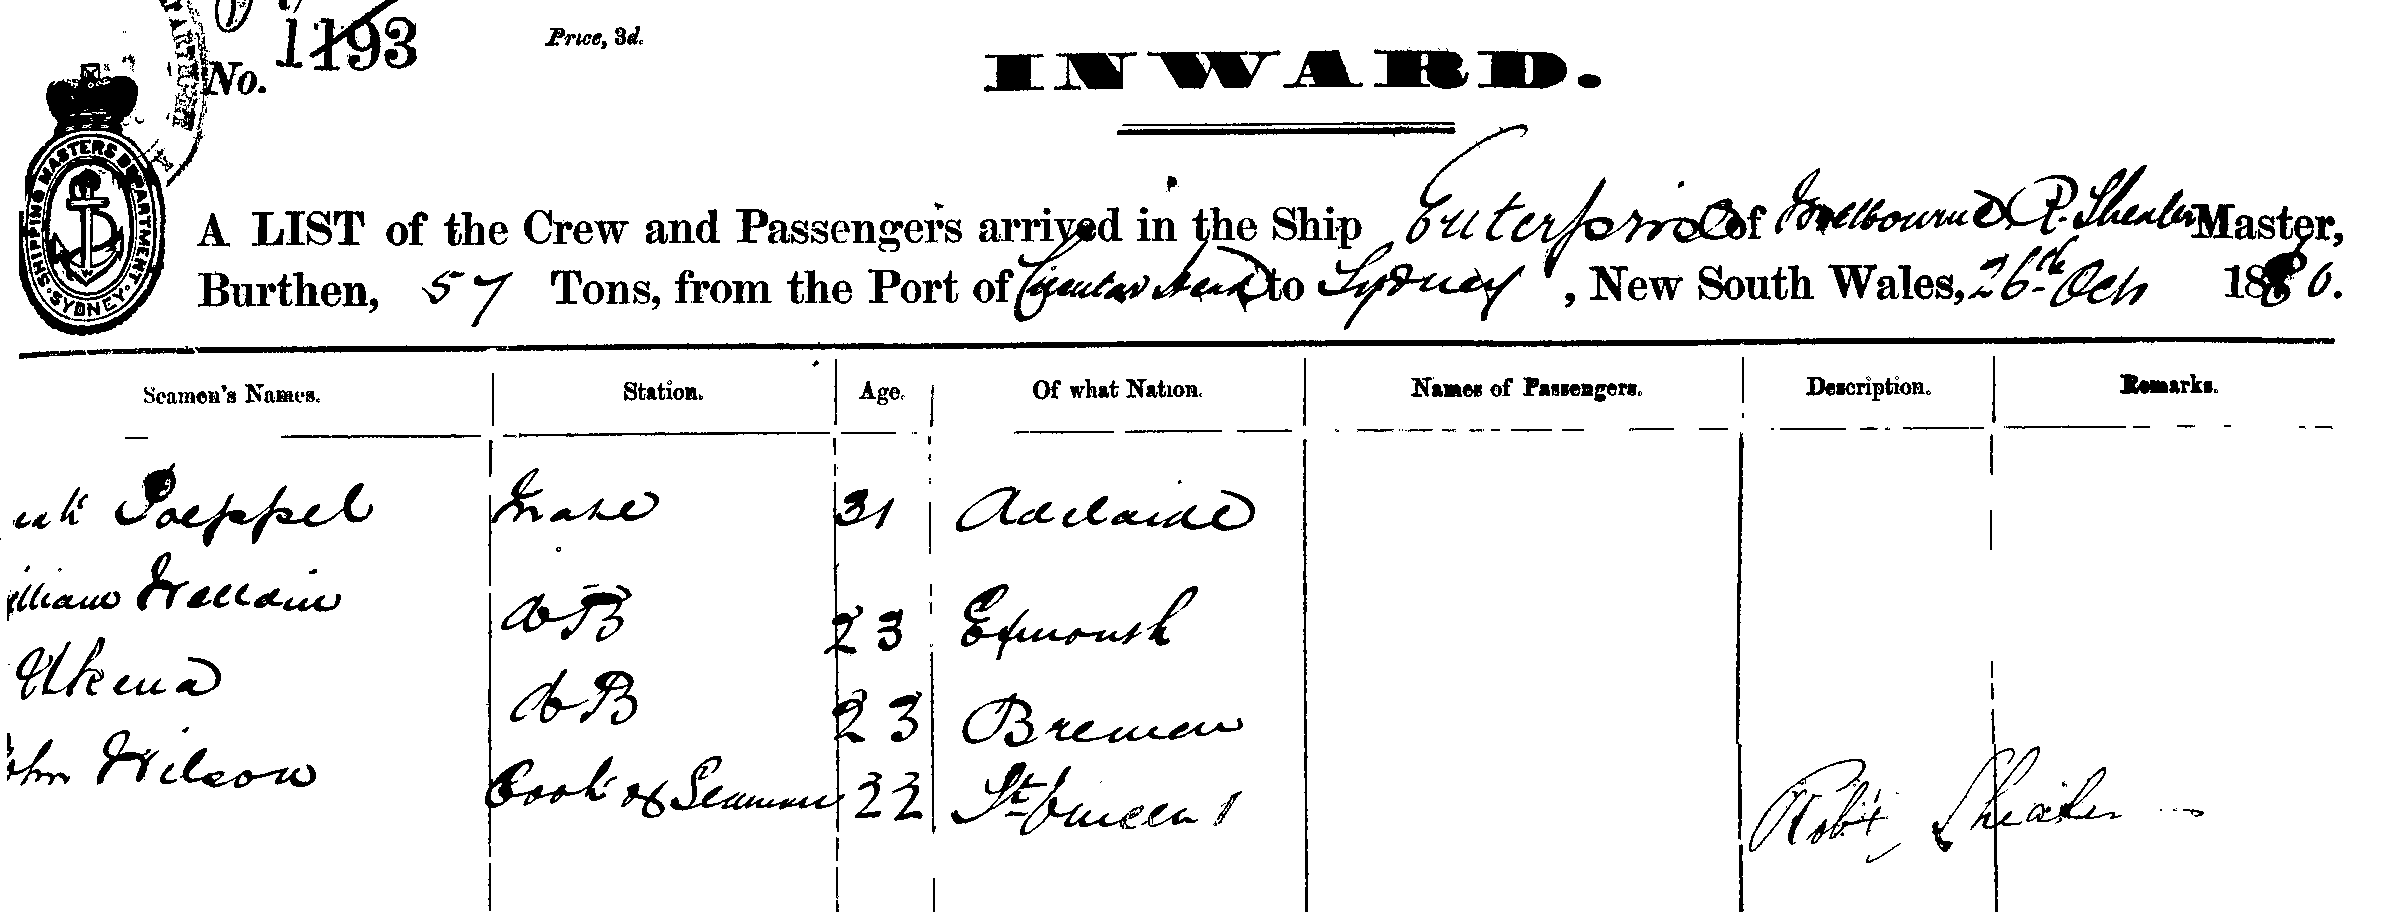 No. 1193
Price, 3d.
INWARD.
SHIPPING MASTERS DEPARTMENT · SYDNEY ·
A LIST of the Crew and Passengers arrived in the Ship Enterprise of Melbourne R. Sheater Master,
Burthen, 57 Tons, from the Port of Circular Head to Sydney, New South Wales, 26th Oct 1880.
Seamen's Names. Station. Age. Of what Nation. Names of Passengers. Description. Remarks.
Poeppel Mate 31 Adelaide
illiam AB 23 Exmouth
Ukena AB 23 Bremen
ohn Wilson Cook & Seaman 22 St Vincent
Robt Sheater